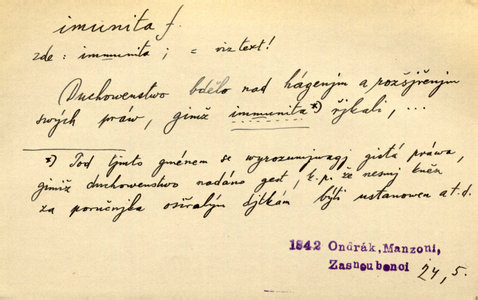 imunita f.
zde : immunita ; = viz text!
Duchowenstwo bdělo nad hágenjm a rozšjřenjm
swých práw, gimiž immunita *) řjkali, ...
*) Pod tjmto gménem se wyrozumjwagj gistá práwa,
gimiž duchowenstwo nadáno gest, k. p. že nesmj kněz
za poručnjka osiřalým djtkám býti ustanowen a t. d.
1842 Ondrák, Manzoni,
Zasnoubenci 24, 5.